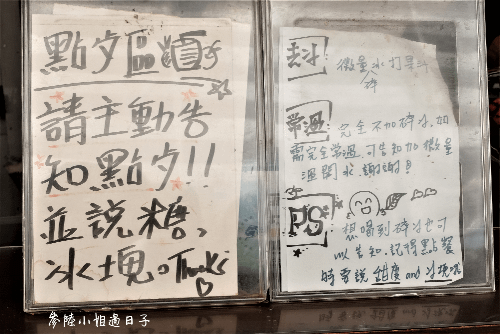 點夕區
請主動告
知點夕!!
並說糖、
冰塊。Thanks
去冰
微量冰打果汁
碎
常溫：完全不加碎冰,如
需完全常溫,可告知加微量
溫開水,謝謝!
PS
想喝到碎冰也可
以告知,記得點餐
時要說 甜度 and 冰塊哦
參陸小姐過日子